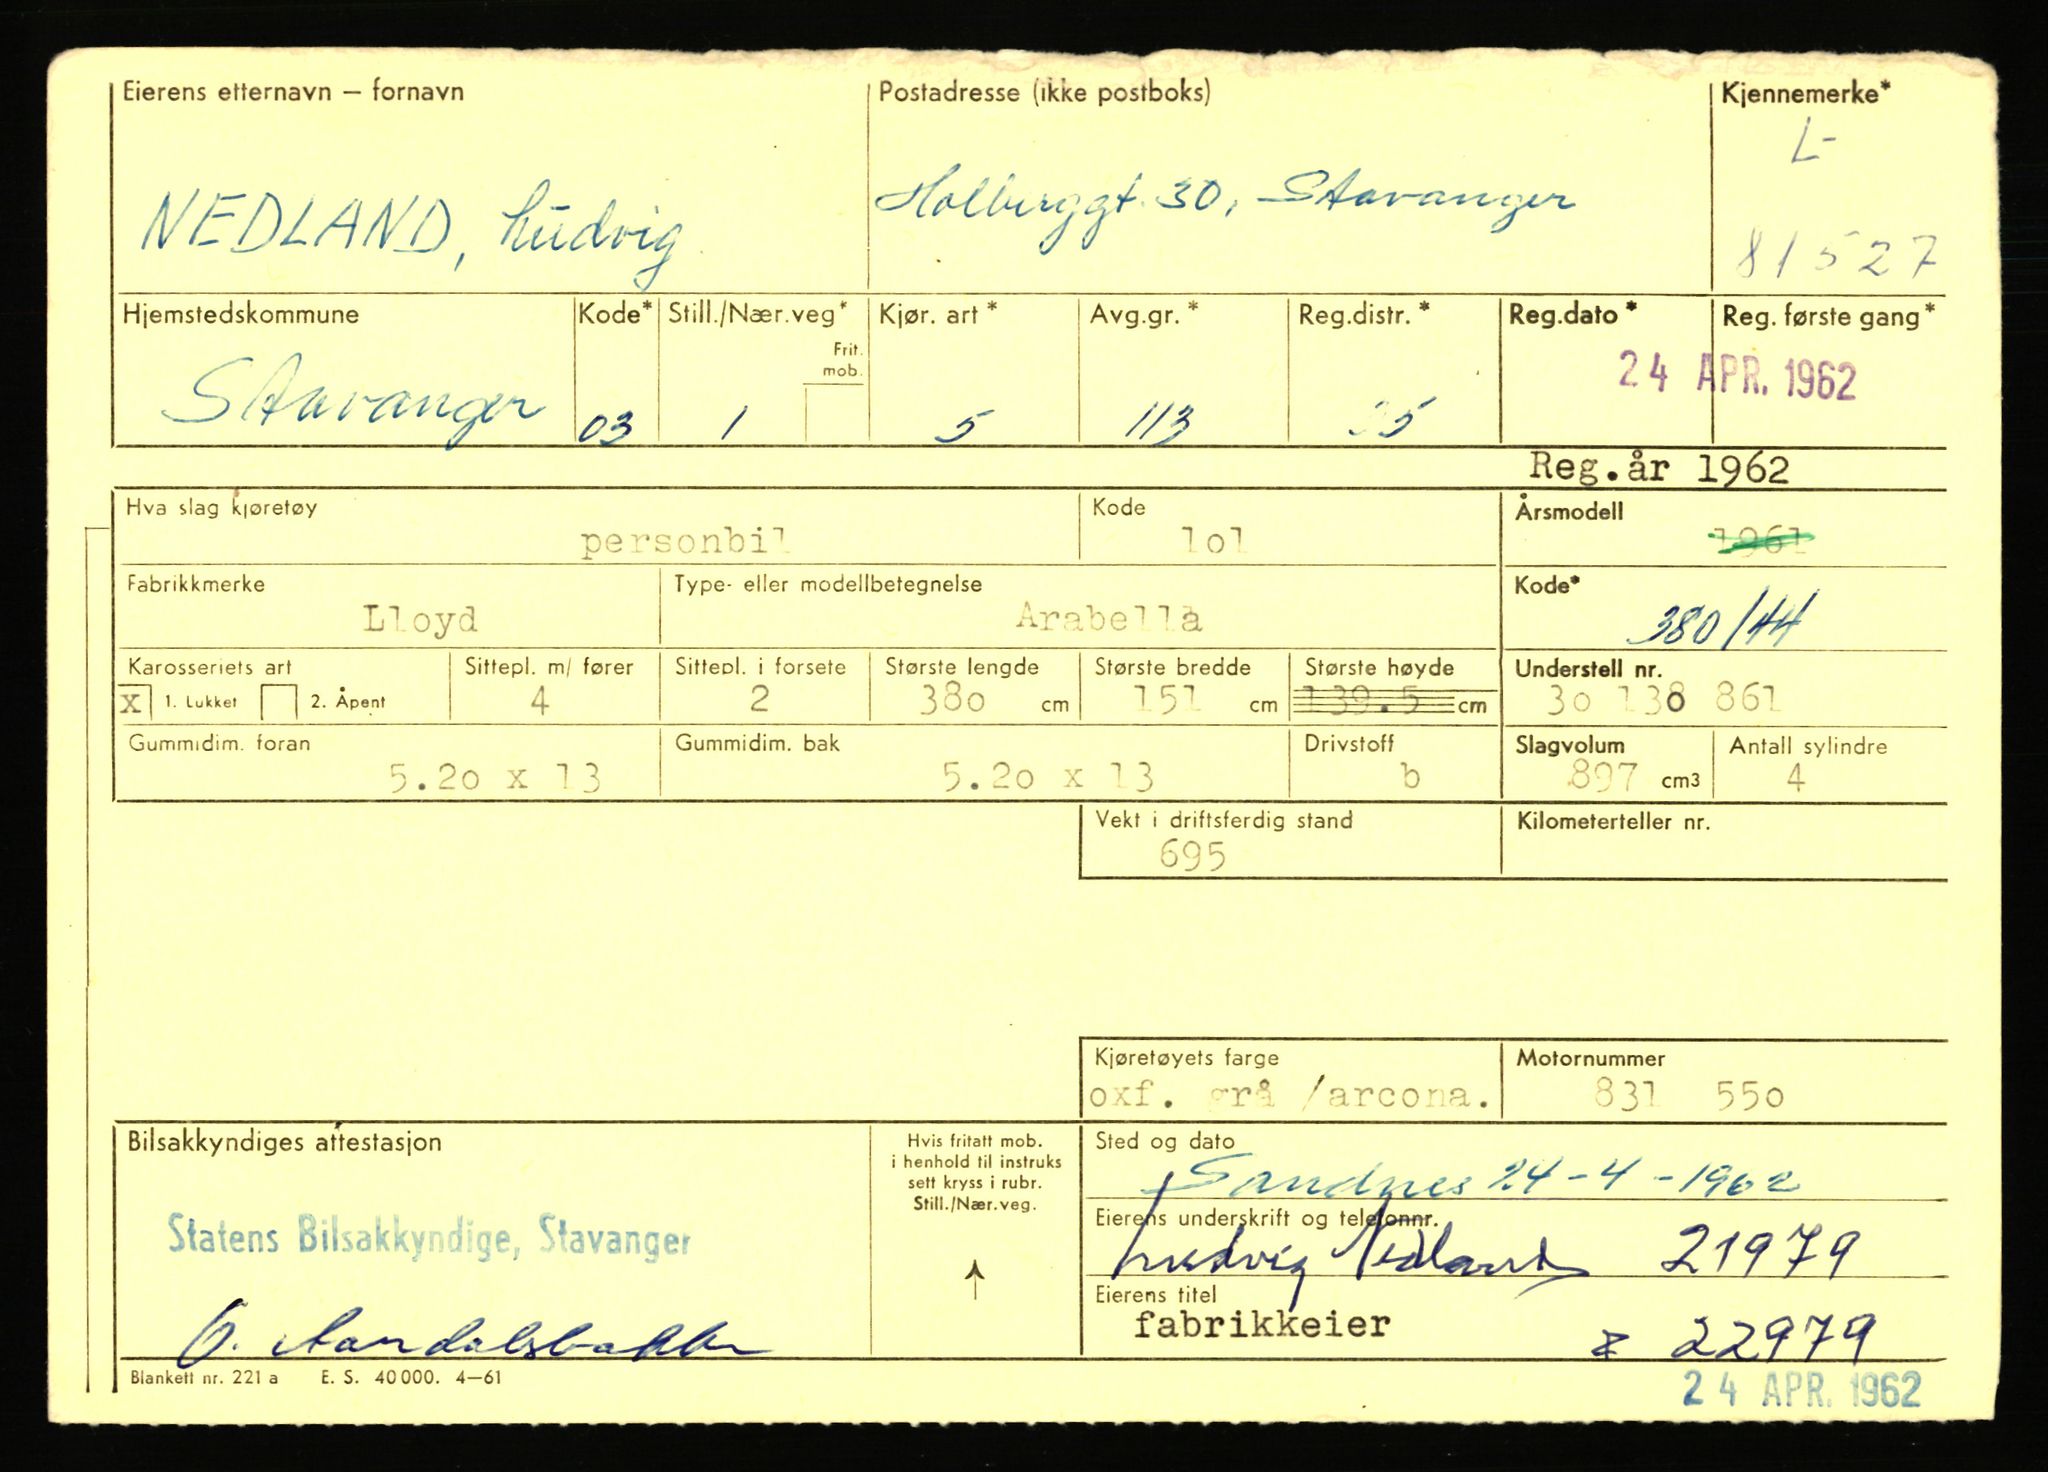 Eierens etternavn – fornavn Postadresse (ikke postboks) Kjennemerke*
L-
NEDLAND, Ludvig Holberggt. 30, Stavanger
81527
Hjemstedskommune Kode* Still./Nær.veg* Kjør. art* Avg.gr.* Reg.distr.* Reg.dato* Reg. første gang*
Frit.
mob.
24 APR. 1962
Stavanger 03 1 5 113 5
Reg.år 1962
Hva slag kjøretøy Kode Årsmodell
personbil lol 1961
Fabrikkmerke Type- eller modellbetegnelse Kode*
Lloyd Arabella 380/44
Karosseriets art Sittepl. m/ fører Sittepl. i forsete Største lengde Største bredde Største høyde Understell nr.
x 1. Lukket 2. Åpent 4 2 38o cm 151 cm 139.5 cm 3o 138 861
Gummidim. foran Gummidim. bak Drivstoff Slagvolum Antall sylindre
5.2o x 13 5.2o x 13 b 897 cm3 4
Vekt i driftsferdig stand Kilometerteller nr.
695
Kjøretøyets farge Motornummer
oxf. grå /arcona. 831 55o
Bilsakkyndiges attestasjon Hvis fritatt mob. Sted og dato
i henhold til instruks
sett kryss i rubr.
Still./Nær.veg.
Sandnes 24-4-1962
Eierens underskrift og telefonnr.
Statens Bilsakkyndige, Stavanger
Ludvig Nedland 21979
Eierens titel
fabrikkeier 22979
O.
Blankett nr. 221 a E. S. 40 000. 4–61
24 APR. 1962